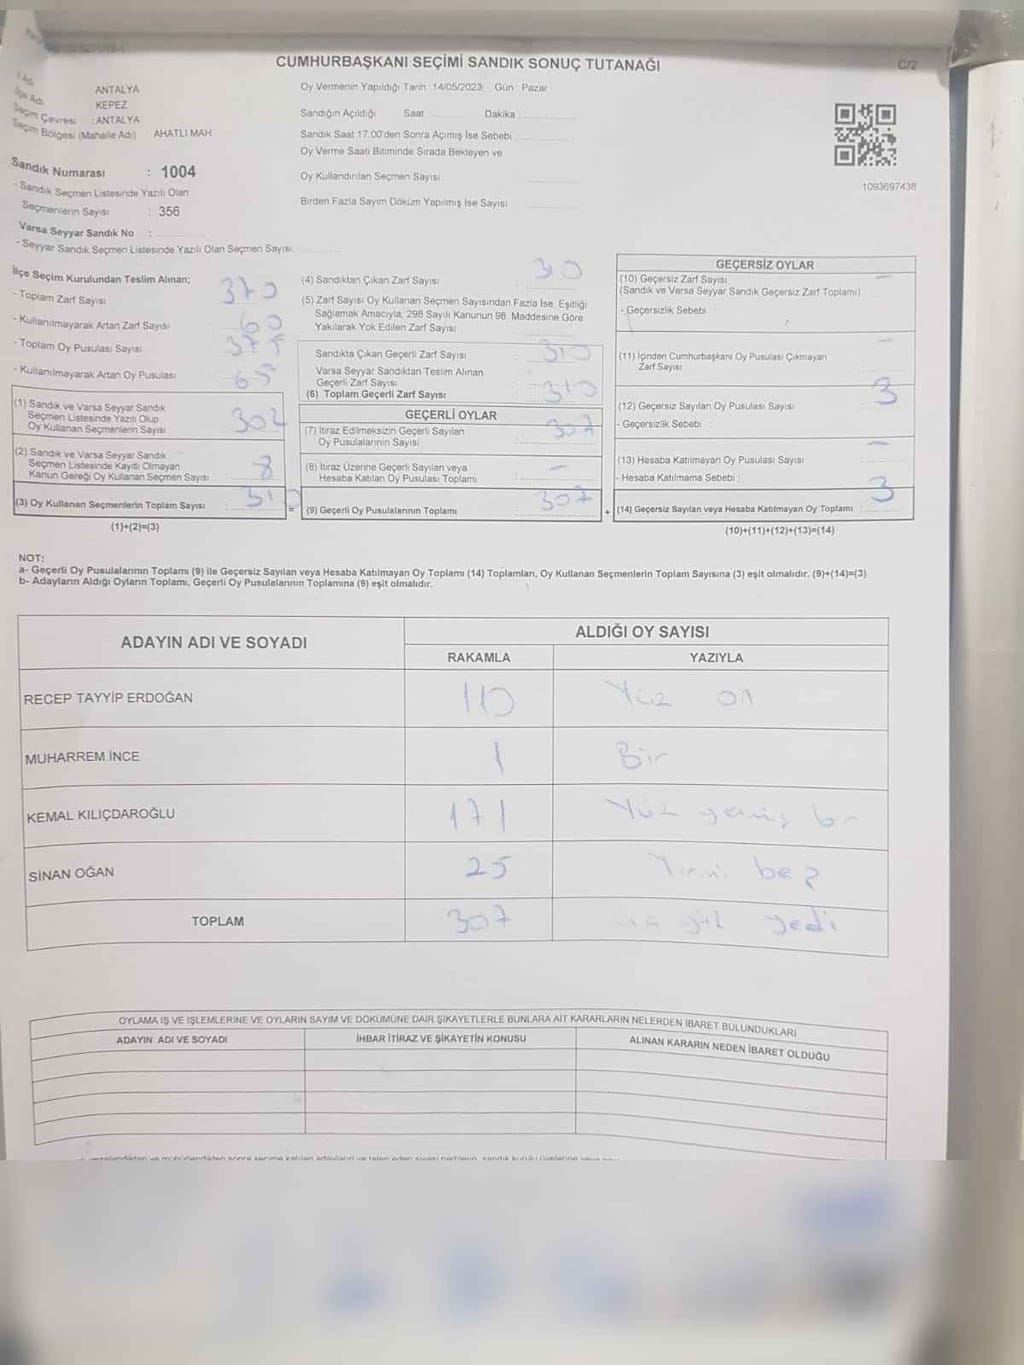 CUMHURBAŞKANI SEÇİMİ SANDIK SONUÇ TUTANAĞI
C/2
İlçe Adı
ANTALYA
KEPEZ
Seçim Çevresi : ANTALYA
Seçim Bölgesi (Mahalle Adı) AHATLI MAH
Sandık Numarası : 1004
- Sandık Seçmen Listesinde Yazılı Olan
Seçmenlerin Sayısı : 356
Varsa Seyyar Sandık No :
- Seyyar Sandık Seçmen Listesinde Yazılı Olan Seçmen Sayısı:
Oy Vermenin Yapıldığı Tarih :14/05/2023 Gün Pazar
Sandığın Açıldığı Saat Dakika
Sandık Saat 17.00'den Sonra Açımış İse Sebebi
Oy Verme Saati Bitiminde Sırada Bekleyen ve
Oy Kullandırılan Seçmen Sayısı
Birden Fazla Sayım Döküm Yapılmış İse Sayısı
1093697438
İlçe Seçim Kurulundan Teslim Alınan;
- Toplam Zarf Sayısı 370
- Kullanılmayarak Artan Zarf Sayısı 60
- Toplam Oy Pusulası Sayısı 375
- Kullanılmayarak Artan Oy Pusulası 65
(1) Sandık ve Varsa Seyyar Sandık
Seçmen Listesinde Yazılı Olup
Oy Kullanan Seçmenlerin Sayısı 302
(2) Sandık ve Varsa Seyyar Sandık
Seçmen Listesinde Kayıtlı Olmayan
Kanun Gereği Oy Kullanan Seçmen Sayısı 8
(3) Oy Kullanan Seçmenlerin Toplam Sayısı 310
(1)+(2)=(3)
=
(4) Sandıktan Çıkan Zarf Sayısı 310
(5) Zarf Sayısı Oy Kullanan Seçmen Sayısından Fazla İse, Eşitliği
Sağlamak Amacıyla, 298 Sayılı Kanunun 98. Maddesine Göre
Yakılarak Yok Edilen Zarf Sayısı
Sandıkta Çıkan Geçerli Zarf Sayısı 310
Varsa Seyyar Sandıktan Teslim Alınan
Geçerli Zarf Sayısı
(6) Toplam Geçerli Zarf Sayısı 310
GEÇERLİ OYLAR
(7) İtiraz Edilmeksizin Geçerli Sayılan
Oy Pusulalarının Sayısı 307
(8) İtiraz Üzerine Geçerli Sayılan veya
Hesaba Katılan Oy Pusulası Toplamı –
(9) Geçerli Oy Pusulalarının Toplamı 307
+
GEÇERSİZ OYLAR
(10) Geçersiz Zarf Sayısı –
(Sandık ve Varsa Seyyar Sandık Geçersiz Zarf Toplamı)
- Geçersizlik Sebebi :
(11) İçinden Cumhurbaşkanı Oy Pusulası Çıkmayan –
Zarf Sayısı
(12) Geçersiz Sayılan Oy Pusulası Sayısı 3
- Geçersizlik Sebebi :
(13) Hesaba Katılmayan Oy Pusulası Sayısı –
- Hesaba Katılmama Sebebi :
(14) Geçersiz Sayılan veya Hesaba Katılmayan Oy Toplamı 3
(10)+(11)+(12)+(13)=(14)
NOT:
a- Geçerli Oy Pusulalarının Toplamı (9) ile Geçersiz Sayılan veya Hesaba Katılmayan Oy Toplamı (14) Toplamları, Oy Kullanan Seçmenlerin Toplam Sayısına (3) eşit olmalıdır. (9)+(14)=(3)
b- Adayların Aldığı Oyların Toplamı, Geçerli Oy Pusulalarının Toplamına (9) eşit olmalıdır.
ADAYIN ADI VE SOYADI ALDIĞI OY SAYISI
RAKAMLA YAZIYLA
RECEP TAYYİP ERDOĞAN 110 Yüz on
MUHARREM İNCE 1 Bir
KEMAL KILIÇDAROĞLU 171 Yüz yetmiş bir
SİNAN OĞAN 25 Yirmi beş
TOPLAM 307 yüz yedi
OYLAMA İŞ VE İŞLEMLERİNE VE OYLARIN SAYIM VE DÖKÜMÜNE DAİR ŞİKAYETLERLE BUNLARA AİT KARARLARIN NELERDEN İBARET BULUNDUKLARI
ADAYIN ADI VE SOYADI İHBAR İTİRAZ VE ŞİKAYETİN KONUSU ALINAN KARARIN NEDEN İBARET OLDUĞU